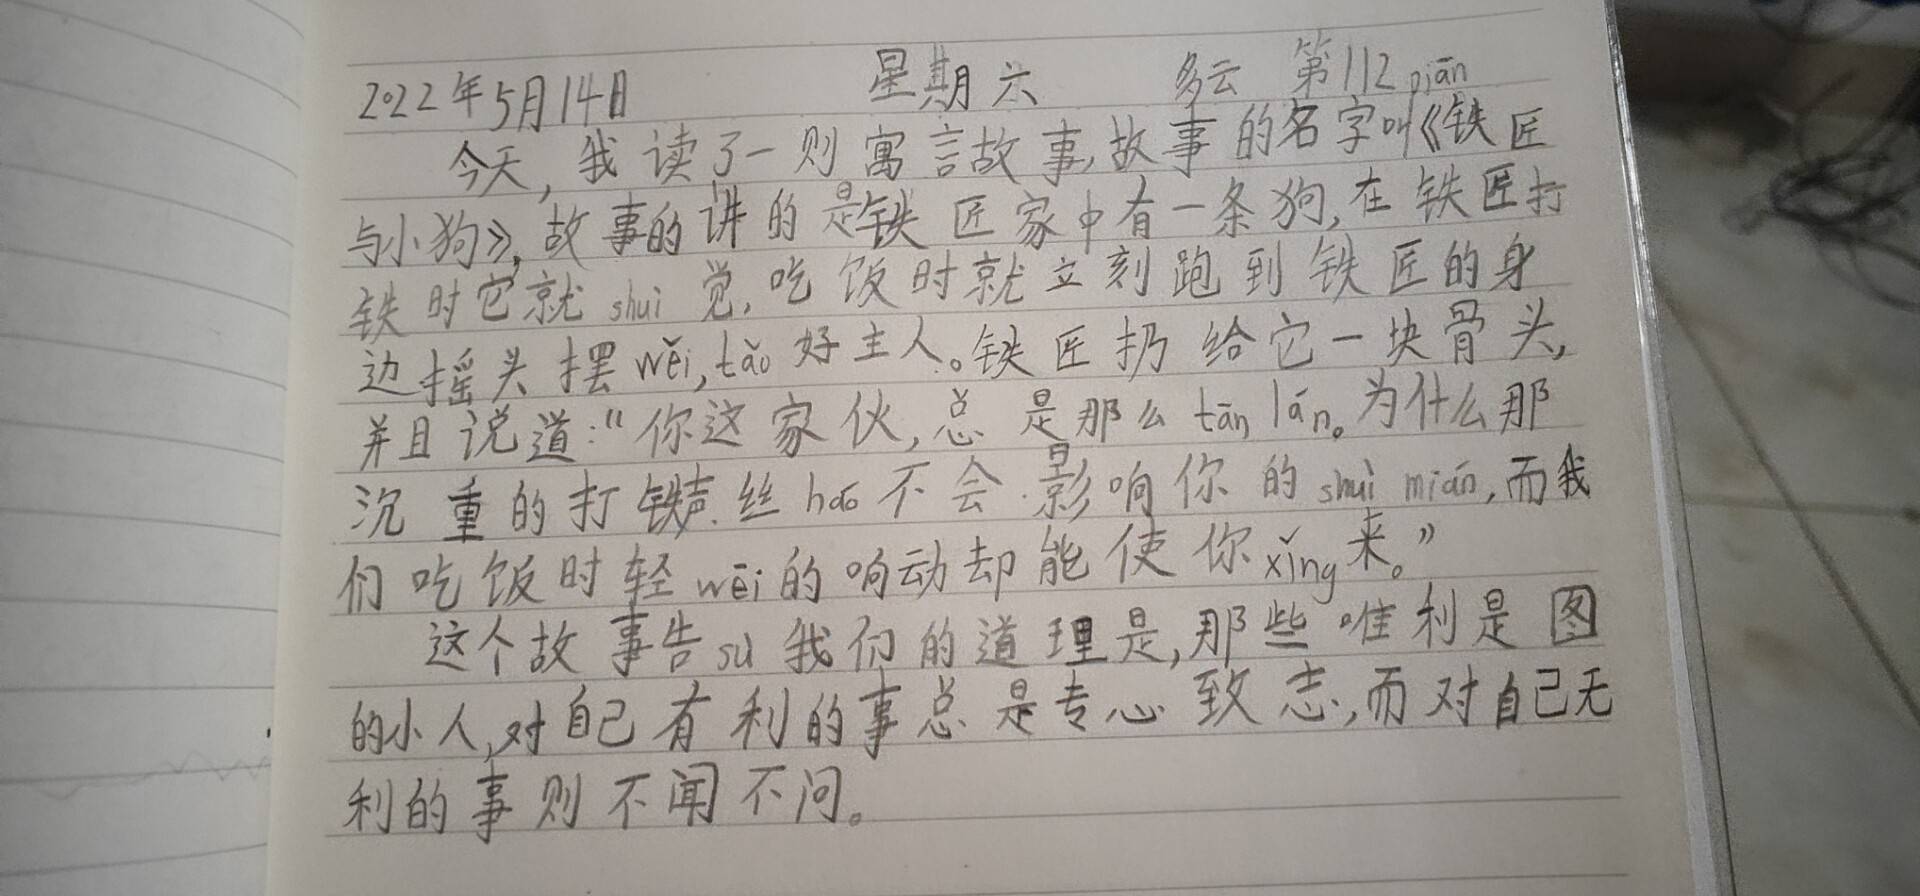 2022年5月14日 星期六 多云 第112piān
今天,我读了一则寓言故事,故事的名字叫《铁匠
与小狗》,故事的讲的是铁匠家中有一条狗,在铁匠打
铁时它就shuì觉,吃饭时就立刻跑到铁匠的身
边摇头摆wěi,tǎo好主人。铁匠扔给它一块骨头,
并且说道:“你这家伙,总是那么tān lán。为什么那
沉重的打铁声丝háo不会影响你的shuì mián,而我
们吃饭时轻wēi的响动却能使你xǐng来。”
这个故事告su我们的道理是,那些唯利是图
的小人,对自己有利的事总是专心致志,而对自己无
利的事则不闻不问。